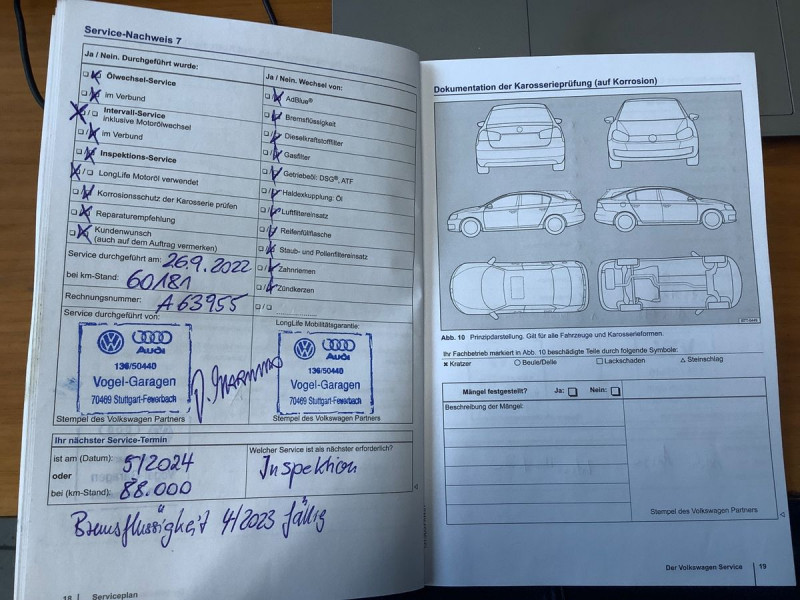 Service-Nachweis 7
Ja / Nein. Durchgeführt wurde:
Ölwechsel-Service
im Verbund
Intervall-Service
inklusive Motorölwechsel
im Verbund
Inspektions-Service
LongLife Motoröl verwendet
Korrosionsschutz der Karosserie prüfen
Reparaturempfehlung
Kundenwunsch
(auch auf dem Auftrag vermerken)
Service durchgeführt am: 26.9.2022
bei km-Stand: 60181
Rechnungsnummer: A63955
Service durchgeführt von:
Audi
136/50440
Vogel-Garagen
70469 Stuttgart-Feuerbach
Stempel des Volkswagen Partners
Ja / Nein. Wechsel von:
AdBlue®
Bremsflüssigkeit
Dieselkraftstofffilter
Gasfilter
Getriebeöl: DSG®, ATF
Haldexkupplung: Öl
Luftfiltereinsatz
Reifenfüllflasche
Staub- und Pollenfiltereinsatz
Zahnriemen
Zündkerzen
LongLife Mobilitätsgarantie:
Audi
136/50440
Vogel-Garagen
70469 Stuttgart-Feuerbach
Stempel des Volkswagen Partners
Ihr nächster Service-Termin
ist am (Datum): 5/2024
oder
bei (km-Stand): 88.000
Welcher Service ist als nächster erforderlich?
Inspektion
Bremsflüssigkeit 4/2023 fällig
18 | Serviceplan
Dokumentation der Karosserieprüfung (auf Korrosion)
Abb. 10 Prinzipdarstellung. Gilt für alle Fahrzeuge und Karosserieformen.
Ihr Fachbetrieb markiert in Abb. 10 beschädigte Teile durch folgende Symbole:
× Kratzer ○ Beule/Delle □ Lackschaden △ Steinschlag
Mängel festgestellt? Ja: Nein:
Beschreibung der Mängel:
Stempel des Volkswagen Partners
Der Volkswagen Service | 19